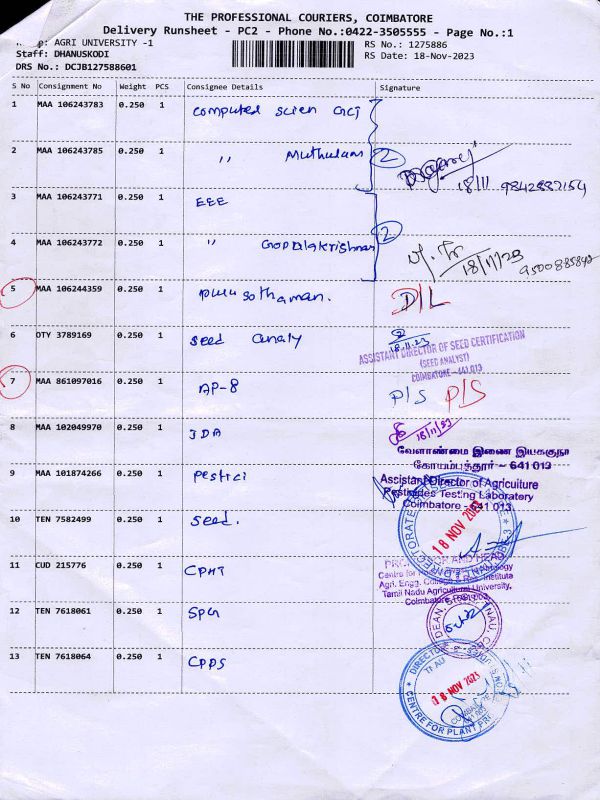 THE PROFESSIONAL COURIERS, COIMBATORE
Delivery Runsheet - PC2 - Phone No.:0422-3505555 - Page No.:1
AGRI UNIVERSITY -1
RS No.: 1275886
Staff: DHANUSKODI
RS Date: 18-Nov-2023
DRS No.: DCJB127588601
S No Consignment No Weight PCS Consignee Details Signature
1 MAA 106243783 0.250 1 computed scien GCT
2 MAA 106243785 0.250 1 ,, Muthulam 2
18/11 9842887154
3 MAA 106243771 0.250 1 EEE
4 MAA 106243772 0.250 1 ,, Gopalakrishnan 2
18/11/23 9500885842
5 MAA 106244359 0.250 1 sothaman. D/L
6 OTY 3789169 0.250 1 seed analy 18.11.23
ASSISTANT DIRECTOR OF SEED CERTIFICATION
(SEED ANALYST)
COIMBATORE - 641 013
7 MAA 861097016 0.250 1 AP-8 P/S P/S
8 MAA 102049970 0.250 1 JDA 18/11/23
வேளாண்மை இணை இயக்குநர்
கோயம்புத்தூர் – 641 013
9 MAA 101874266 0.250 1 Pestici
Assistant Director of Agriculture
Pesticides Testing Laboratory
Coimbatore - 641 013.
10 TEN 7582499 0.250 1 seed.
18 NOV 2023
11 CUD 215776 0.250 1 CPHT
PROFESSOR AND HEAD
Agri. Engg. College & Res. Institute
Tamil Nadu Agricultural University,
Coimbatore - 641 003.
12 TEN 7618061 0.250 1 SPGS
DEAN,
13 TEN 7618064 0.250 1 CPPS
TNAU
18 NOV 2023
CENTRE FOR PLANT